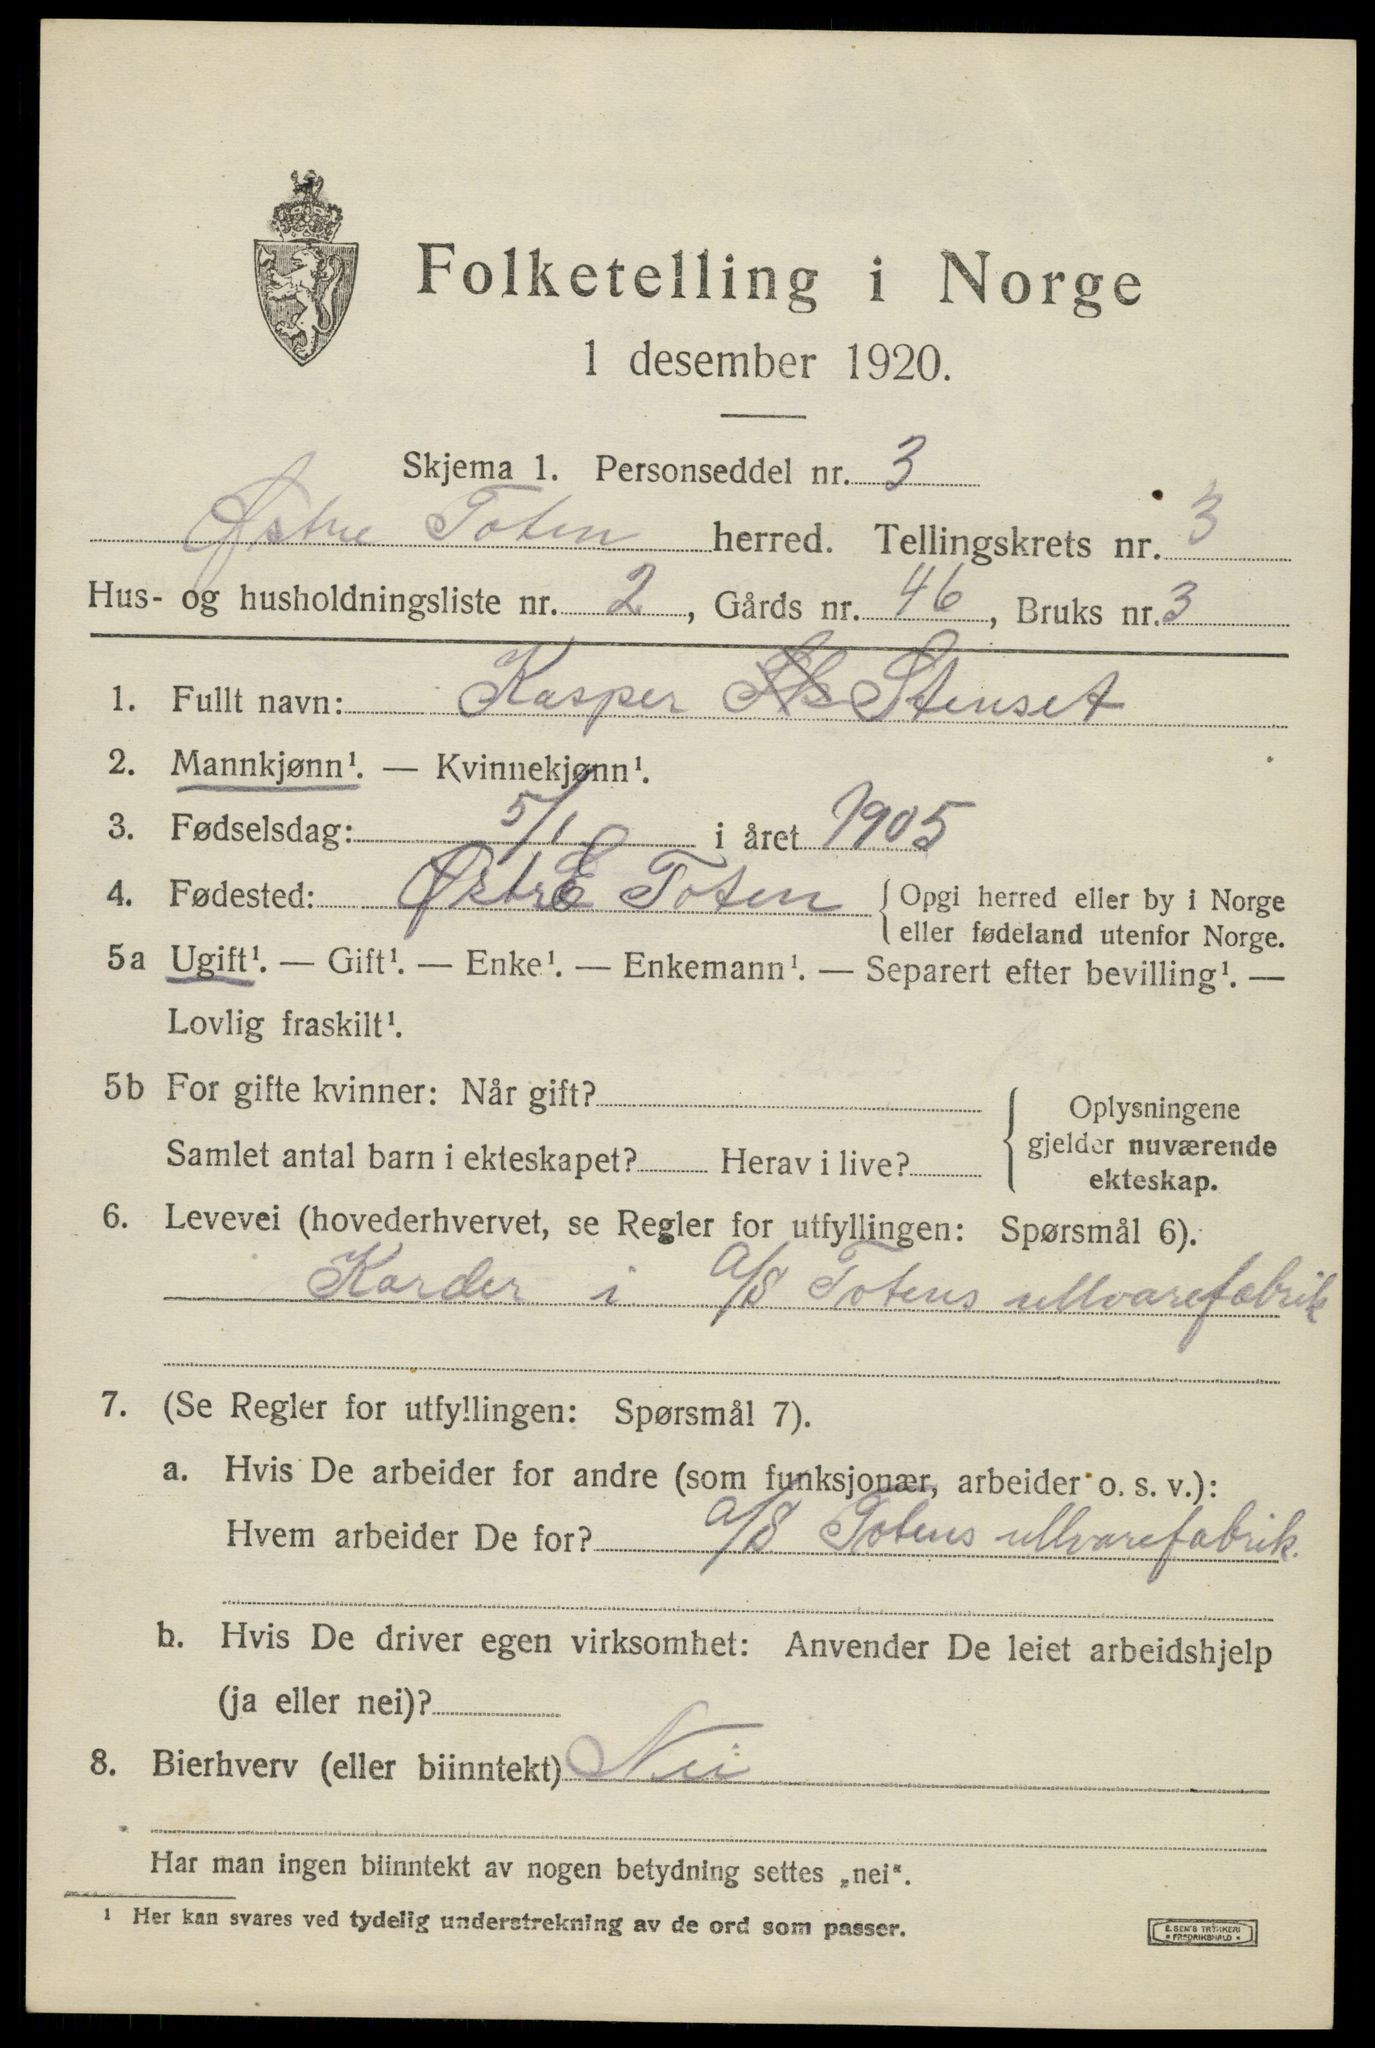 Folketelling i Norge
1 desember 1920.
Skjema 1. Personseddel nr. 3
Østre Toten herred. Tellingskrets nr. 3
Hus- og husholdningsliste nr. 2, Gårds nr. 46, Bruks nr. 3
1. Fullt navn: Kasper Stenset
2. Mannkjønn¹. — Kvinnekjønn¹.
3. Fødselsdag: 5/1 i året 1905
4. Fødested: Østre Toten { Opgi herred eller by i Norge
eller fødeland utenfor Norge.
5a Ugift¹. — Gift¹. — Enke¹. — Enkemann¹. — Separert efter bevilling¹. —
Lovlig fraskilt¹.
5b For gifte kvinner: Når gift?
Samlet antal barn i ekteskapet? Herav i live?
Oplysningene
gjelder nuværende
ekteskap.
6. Levevei (hovederhvervet, se Regler for utfyllingen: Spørsmål 6).
Karder i A/S Totens ullvarefabrik
7. (Se Regler for utfyllingen: Spørsmål 7).
a. Hvis De arbeider for andre (som funksjonær, arbeider o. s. v.):
Hvem arbeider De for? A/S Totens ullvarefabrik.
b. Hvis De driver egen virksomhet: Anvender De leiet arbeidshjelp
(ja eller nei)?
8. Bierhverv (eller biinntekt) Nei
Har man ingen biinntekt av nogen betydning settes „nei“.
¹ Her kan svares ved tydelig understrekning av de ord som passer.
FREDRIKSHALD